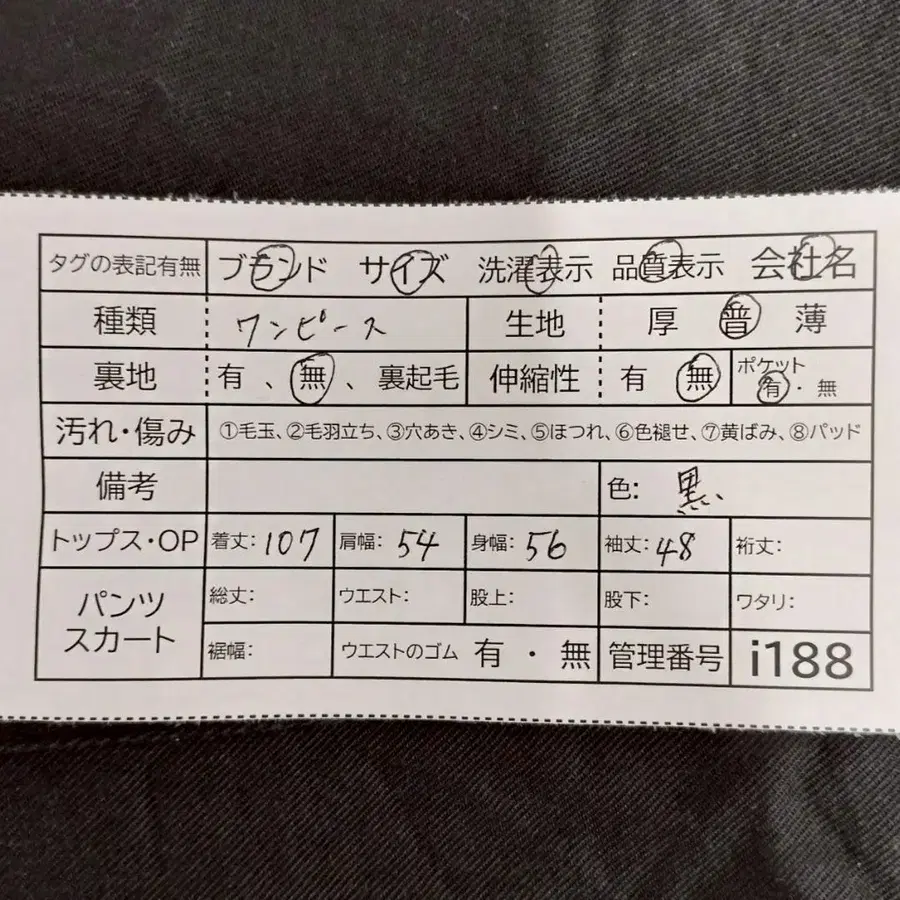 タグの表記有無 ブランド サイズ 洗濯表示 品質表示 会社名
種類 ワンピース 生地 厚 普 薄
裏地 有 、 無 、 裏起毛 伸縮性 有 無 ポケット 有 ・ 無
汚れ・傷み ①毛玉、②毛羽立ち、③穴あき、④シミ、⑤ほつれ、⑥色褪せ、⑦黄ばみ、⑧パッド
備考 色: 黒
トップス・OP 着丈: 107 肩幅: 54 身幅: 56 袖丈: 48 裄丈:
パンツ スカート 総丈: ウエスト: 股上: 股下: ワタリ:
裾幅: ウエストのゴム 有 ・ 無 管理番号 i188